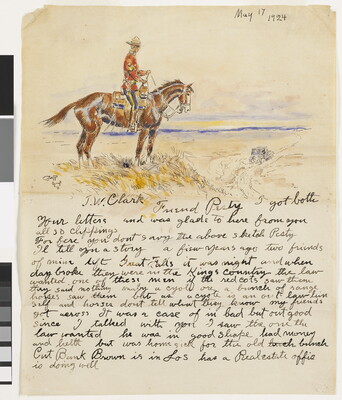 May 17
1924
J.W. Clark
Friend Pesty I got both
your letters and was glade to here from you
all so clippings
For fere you dont savvy the above sketch Pesty
I'll tell you a story a few years ago two friends
of mine left Great Falls it was night and when
day broke they were in the Kings country the law
wanted one of these men If the red cots saw them
they said nothing only a cyote or a bunch of range
horses saw them but as a cyote is an out law him
self and horses dont tell what they know my friends
got across It was a case of in bad but out good
since I talked with you I saw the one the
law wanted he was in good shape had money
and helth but was home sick for the old bunch
Cut Bank Brown is in Los has a Real estate offic
is doing well